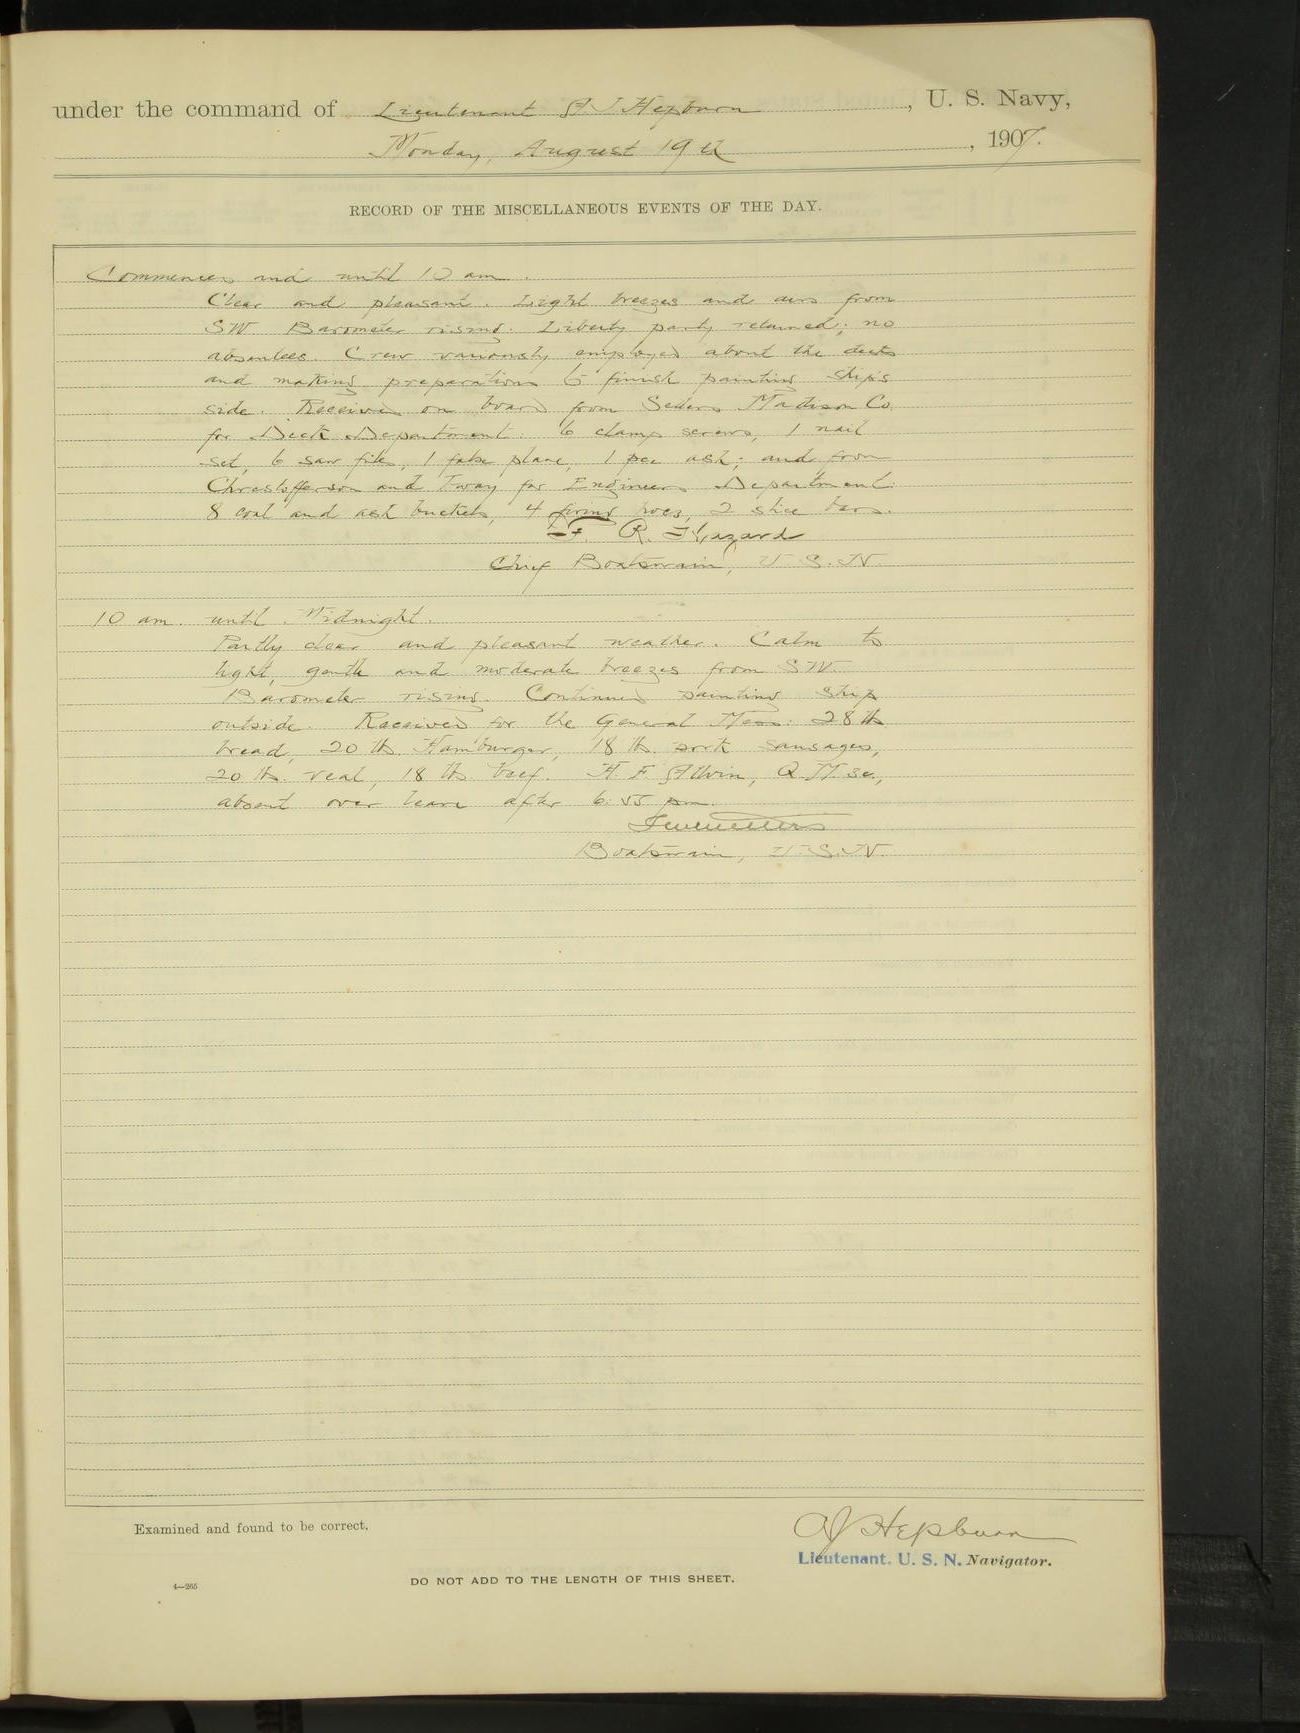 under the command of Lieutenant A J Hepburn, U. S. Navy,
Monday, August 19th, 1907.
RECORD OF THE MISCELLANEOUS EVENTS OF THE DAY.
Commences and until 10 am.
Clear and pleasant. Light breezes and airs from
SW Barometer rising. Liberty party returned; no
absentees. Crew variously employed about the decks
and making preparations to finish painting ship's
side. Received on board from Sellers Madison Co.
for Deck Department: 6 clamp screws, 1 nail
set, 6 saw files, 1 plane, 1 pce ash; and from
Christofferson and Tway for Engineers Department:
8 coal and ash buckets, 4 hoes, 2 slice bars.
F. R. Hazard
Chief Boatswain, U. S. N.
10 am. until Midnight.
Partly clear and pleasant weather. Calm to
light, gentle and moderate breezes from SW.
Barometer rising. Continued painting ship
outside. Received for the General Mess: 28 lb
bread, 20 lb. Hamburger, 18 lb. pork sausages,
20 lb. veal, 18 lb. beef. H. F. Alvin, Q.M.3c.,
absent over leave after 6:55 pm.
Boatswain, U.S.N.
Examined and found to be correct.
AJ Hepburn
Lieutenant. U. S. N. Navigator.
4—265
DO NOT ADD TO THE LENGTH OF THIS SHEET.